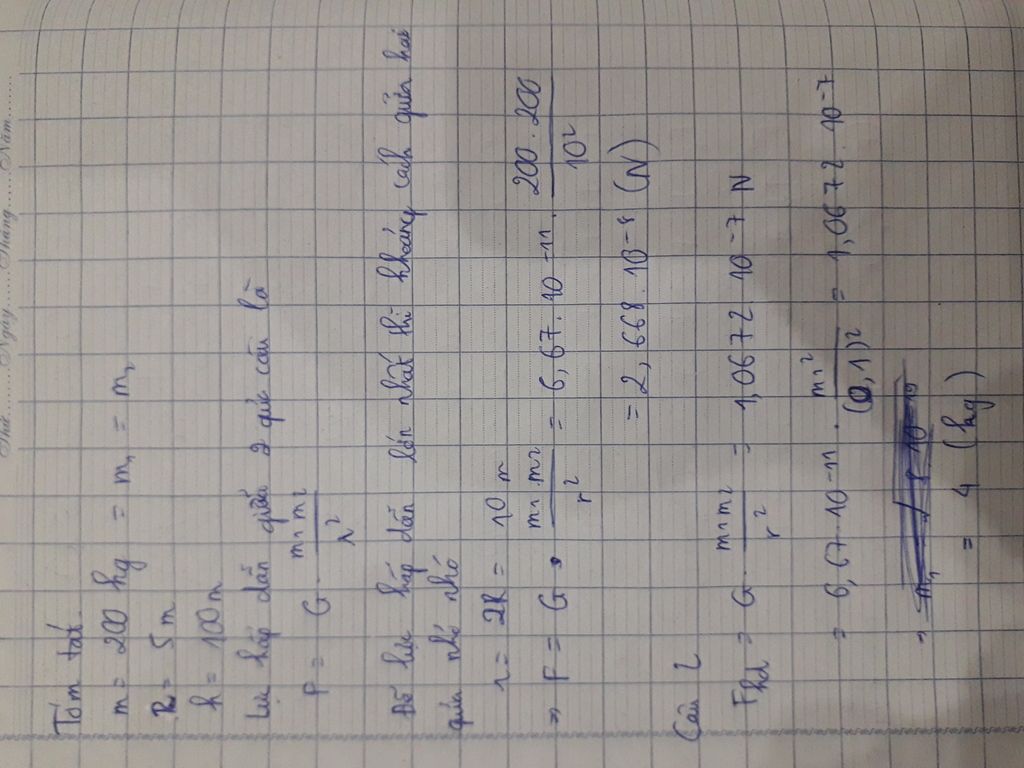 Thứ........Ngày........Tháng........Năm........
Tóm tắt
m = 200 kg = m₁ = m₂
R = 5m
h = 100m
Lực hấp dẫn giữa 2 quả cầu là
F = G . m1m2 / r²
Để lực hấp dẫn lớn nhất thì khoảng cách giữa hai
quả nhỏ nhỏ
r = 2R = 10 m
=> F = G . m1.m2 / r² = 6,67.10-11. 200.200 / 10²
= 2,668.10-8 (N)
Câu 2
Fhd = G . m1m2 / r² = 1,0672.10-7 N
= 6,67.10-11. m1² / (0,1)² = 1,0672.10-7
= 4 (kg)